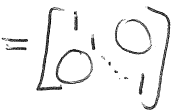 = [ 1 0
1
0 ⋱
1 ]